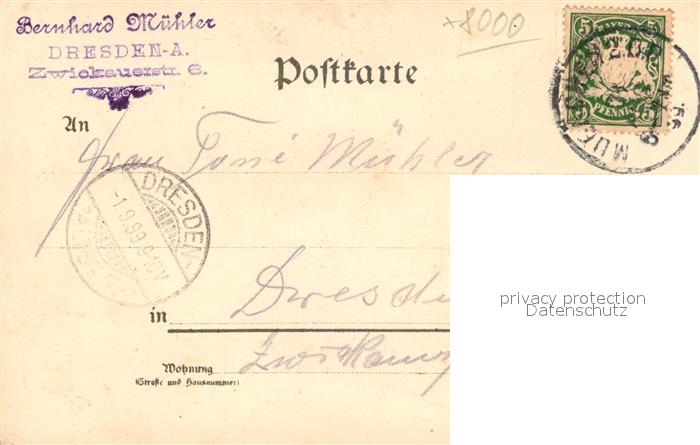 Bernhard Mühler
DRESDEN-A.
Zwickauerstr. 6.
8000
BAYERN
5 5
PFENNIG
Postkarte
An
Frau Toné Mühler
DRESDEN
1.9.99.9-10V
in
Dresde
Wohnung
(Straße und Hausnummer)
privacy protection
Datenschutz